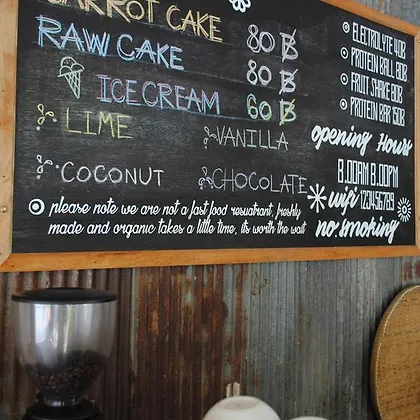 CARROT CAKE 80 ฿
RAW CAKE 80 ฿
ICE CREAM 60 ฿
LIME VANILLA
COCONUT CHOCOLATE
please note we are not a fast food resuatrant, freshly
made and organic takes a little time, its worth the wait
ELECTROLYTE 40B
PROTEIN BALL 30B
FRUIT SHAKE 80B
PROTEIN BAR 150B
opening Hours
8.00AM 8.00PM
wifi 123456789
no smoking